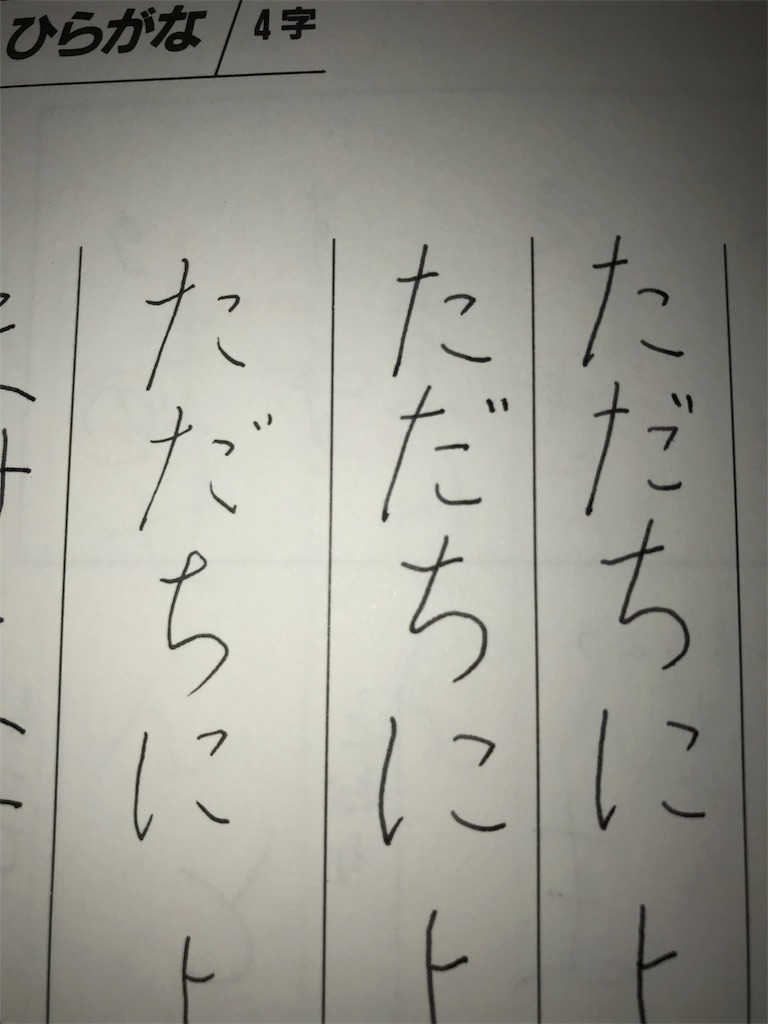 ひらがな／4字
ただちに
ただちに
ただちに